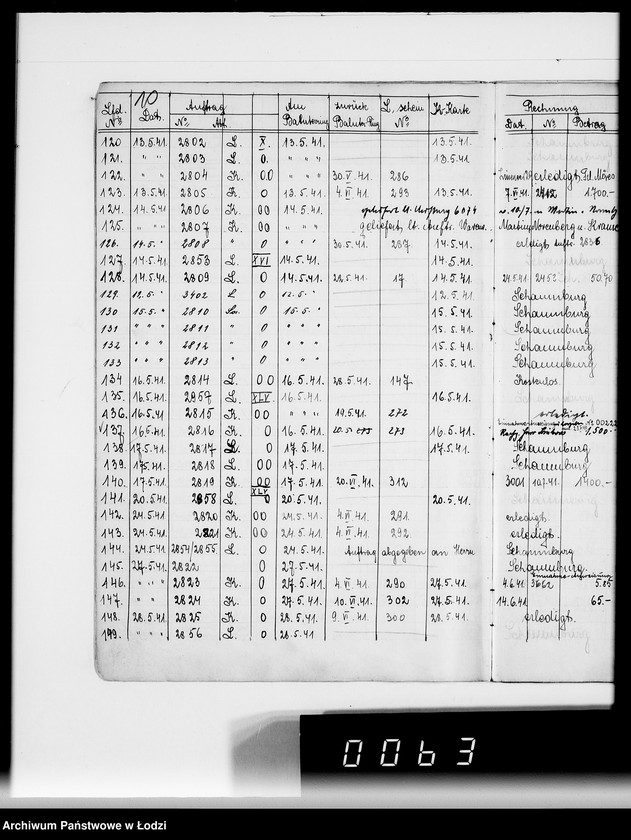 10
Lfd. № Dat. Auftrag № Art. Am Balutenring zurück Balut. Rng L. schein № Kr. Karte Rechnung Dat. № Betrag
120 13.5.41. 2802 L. X. 13.5.41. 13.5.41.
121. " " 2803 L. 0. " " " 13.5.41.
122. " " 2804 K. 00 " " " 30.VI.41. 286 erledigt
123. 13.5.41 2805 K. 0 13.5.41. 4.VI.41. 293 13.5.41. 7.VI.41 2412 1700.-
124. 14.5.41 2806 K. 00 14.5.41.
125. " " 2807 K. 00 " " " geliefert lt. Auftr.
126. 14.5. " 2808 " 0 30.5.41. 287 14.5.41. erledigt Auftr. 2836
127. 14.5.41 2853 L. XVI 14.5.41. 14.5.41.
128. 14.5.41 2809 L. 0 14.5.41. 22.5.41. 17 14.5.41. 24.5.41 2452 50.70
129. 12.5. " 3402 L 0 12.5. " 12.5.41. Schaumburg
130 15.5. " 2810 0 15.5. " 15.5.41. Schaumburg
131 " " " 2811 " 0 " " " 15.5.41. Schaumburg
132 " " " 2812 " 0 " " " 15.5.41. Schaumburg
133 " " " 2813 " 0 " " " 15.5.41. Schaumburg
134 16.5.41. 2814 L. 00 16.5.41. 28.5.41. 147 Kostenlos.
135. 16.5.41. 2957 L. XLV. 16.5.41. 16.5.41.
136. 16.5.41 2815 K. 00 " " " 19.5.41. 272 erledigt.
137. 16.5.41. 2816 K. 0 16.5.41. 273 16.5.41. 1,500.-
138. 17.5.41. 2817 L. 0 17.5.41. 17.5.41. Schaumburg
139. 17.5.41. 2818 L. 00 17.5.41. Schaumburg
140. 17.5.41 2819 K. 00 17.5.41. 20.VI.41. 312 3001 1400.-
141. 20.5.41. 2858 L. XLV 0 20.5.41. 20.5.41.
142. 24.5.41. 2820 K. 00 24.5.41. 4.VI.41. 291. erledigt.
143. 24.5.41. 2821 K. 00 24.5.41. 4.VI.41. 292 erledigt.
144. 24.5.41 2854/2855. L. 0 24.5.41. Auftrag abgegeben an Herrn Schaumburg
145. 27.5.41. 2822 0 27.5.41. Schaumburg
146. " " " 2823 K. 0 27.5.41. 4.VI.41. 290 27.5.41. 4.6.41. 3662
147. " " " 2824 K. 0 27.5.41. 10.VI.41. 302 27.5.41. 14.6.41 65.-
148. 28.5.41. 2825 K. 0 28.5.41. 9.VI.41. 300 28.5.41. erledigt.
149. " " " 2856 L. 0 28.5.41
0063
Archiwum Państwowe w Łodzi